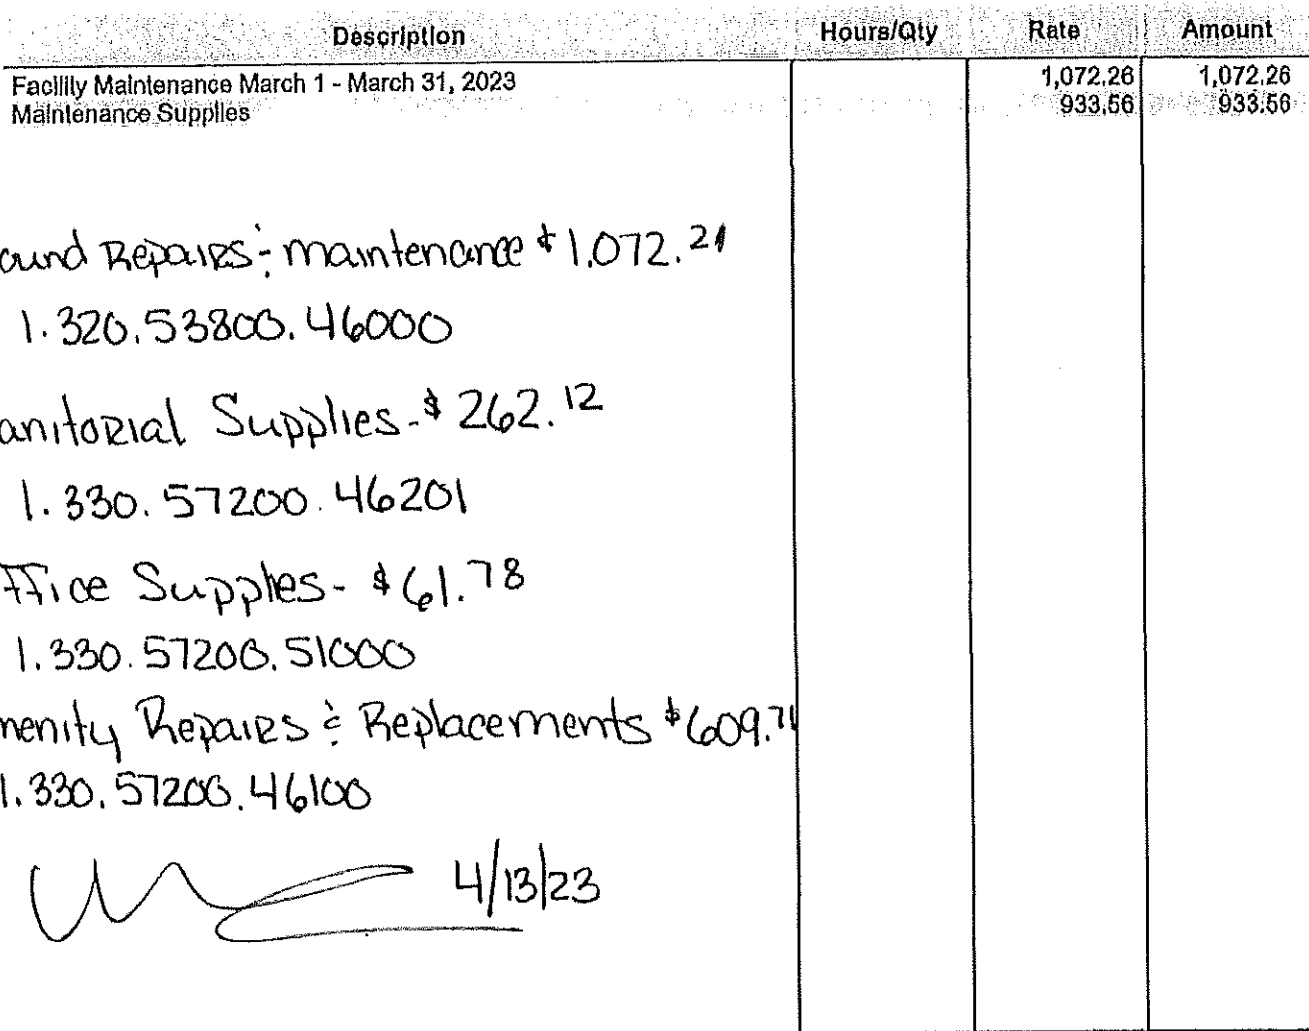 Description Hours/Qty Rate Amount
Facility Maintenance March 1 - March 31, 2023 1,072.26 1,072.26
Maintenance Supplies 933.56 933.56
ound Repairs & maintenance $1,072.
1.320.53800.46000
anitorial Supplies - $262.12
1.330.57200.46201
ffice Supples - $61.78
1.330.57200.51000
menity Repairs & Replacements $609.
1.330.57200.46100
4/13/23